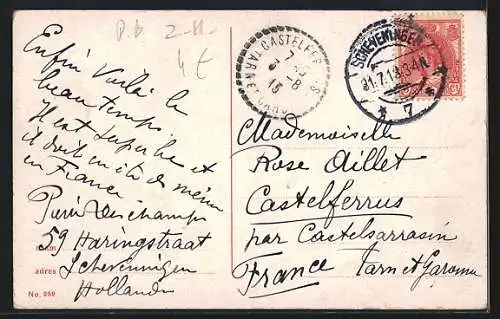 P.b 2-11-
4 f
Enfin Voilà le
beau temps.
Il est superbe et
il doit en être de même
en France
Pierre Deschamps
59 Haringstraat
adres Scheveningen
Hollande
No. 359
CASTELFER S
TARN
7
-8
13
SCHEVENINGEN
31.7.13.3-4N.
* 7 *
Mademoiselle
Rose Aillet
Castelferrus
par Castelsarrasin
France Tarn et Garonne